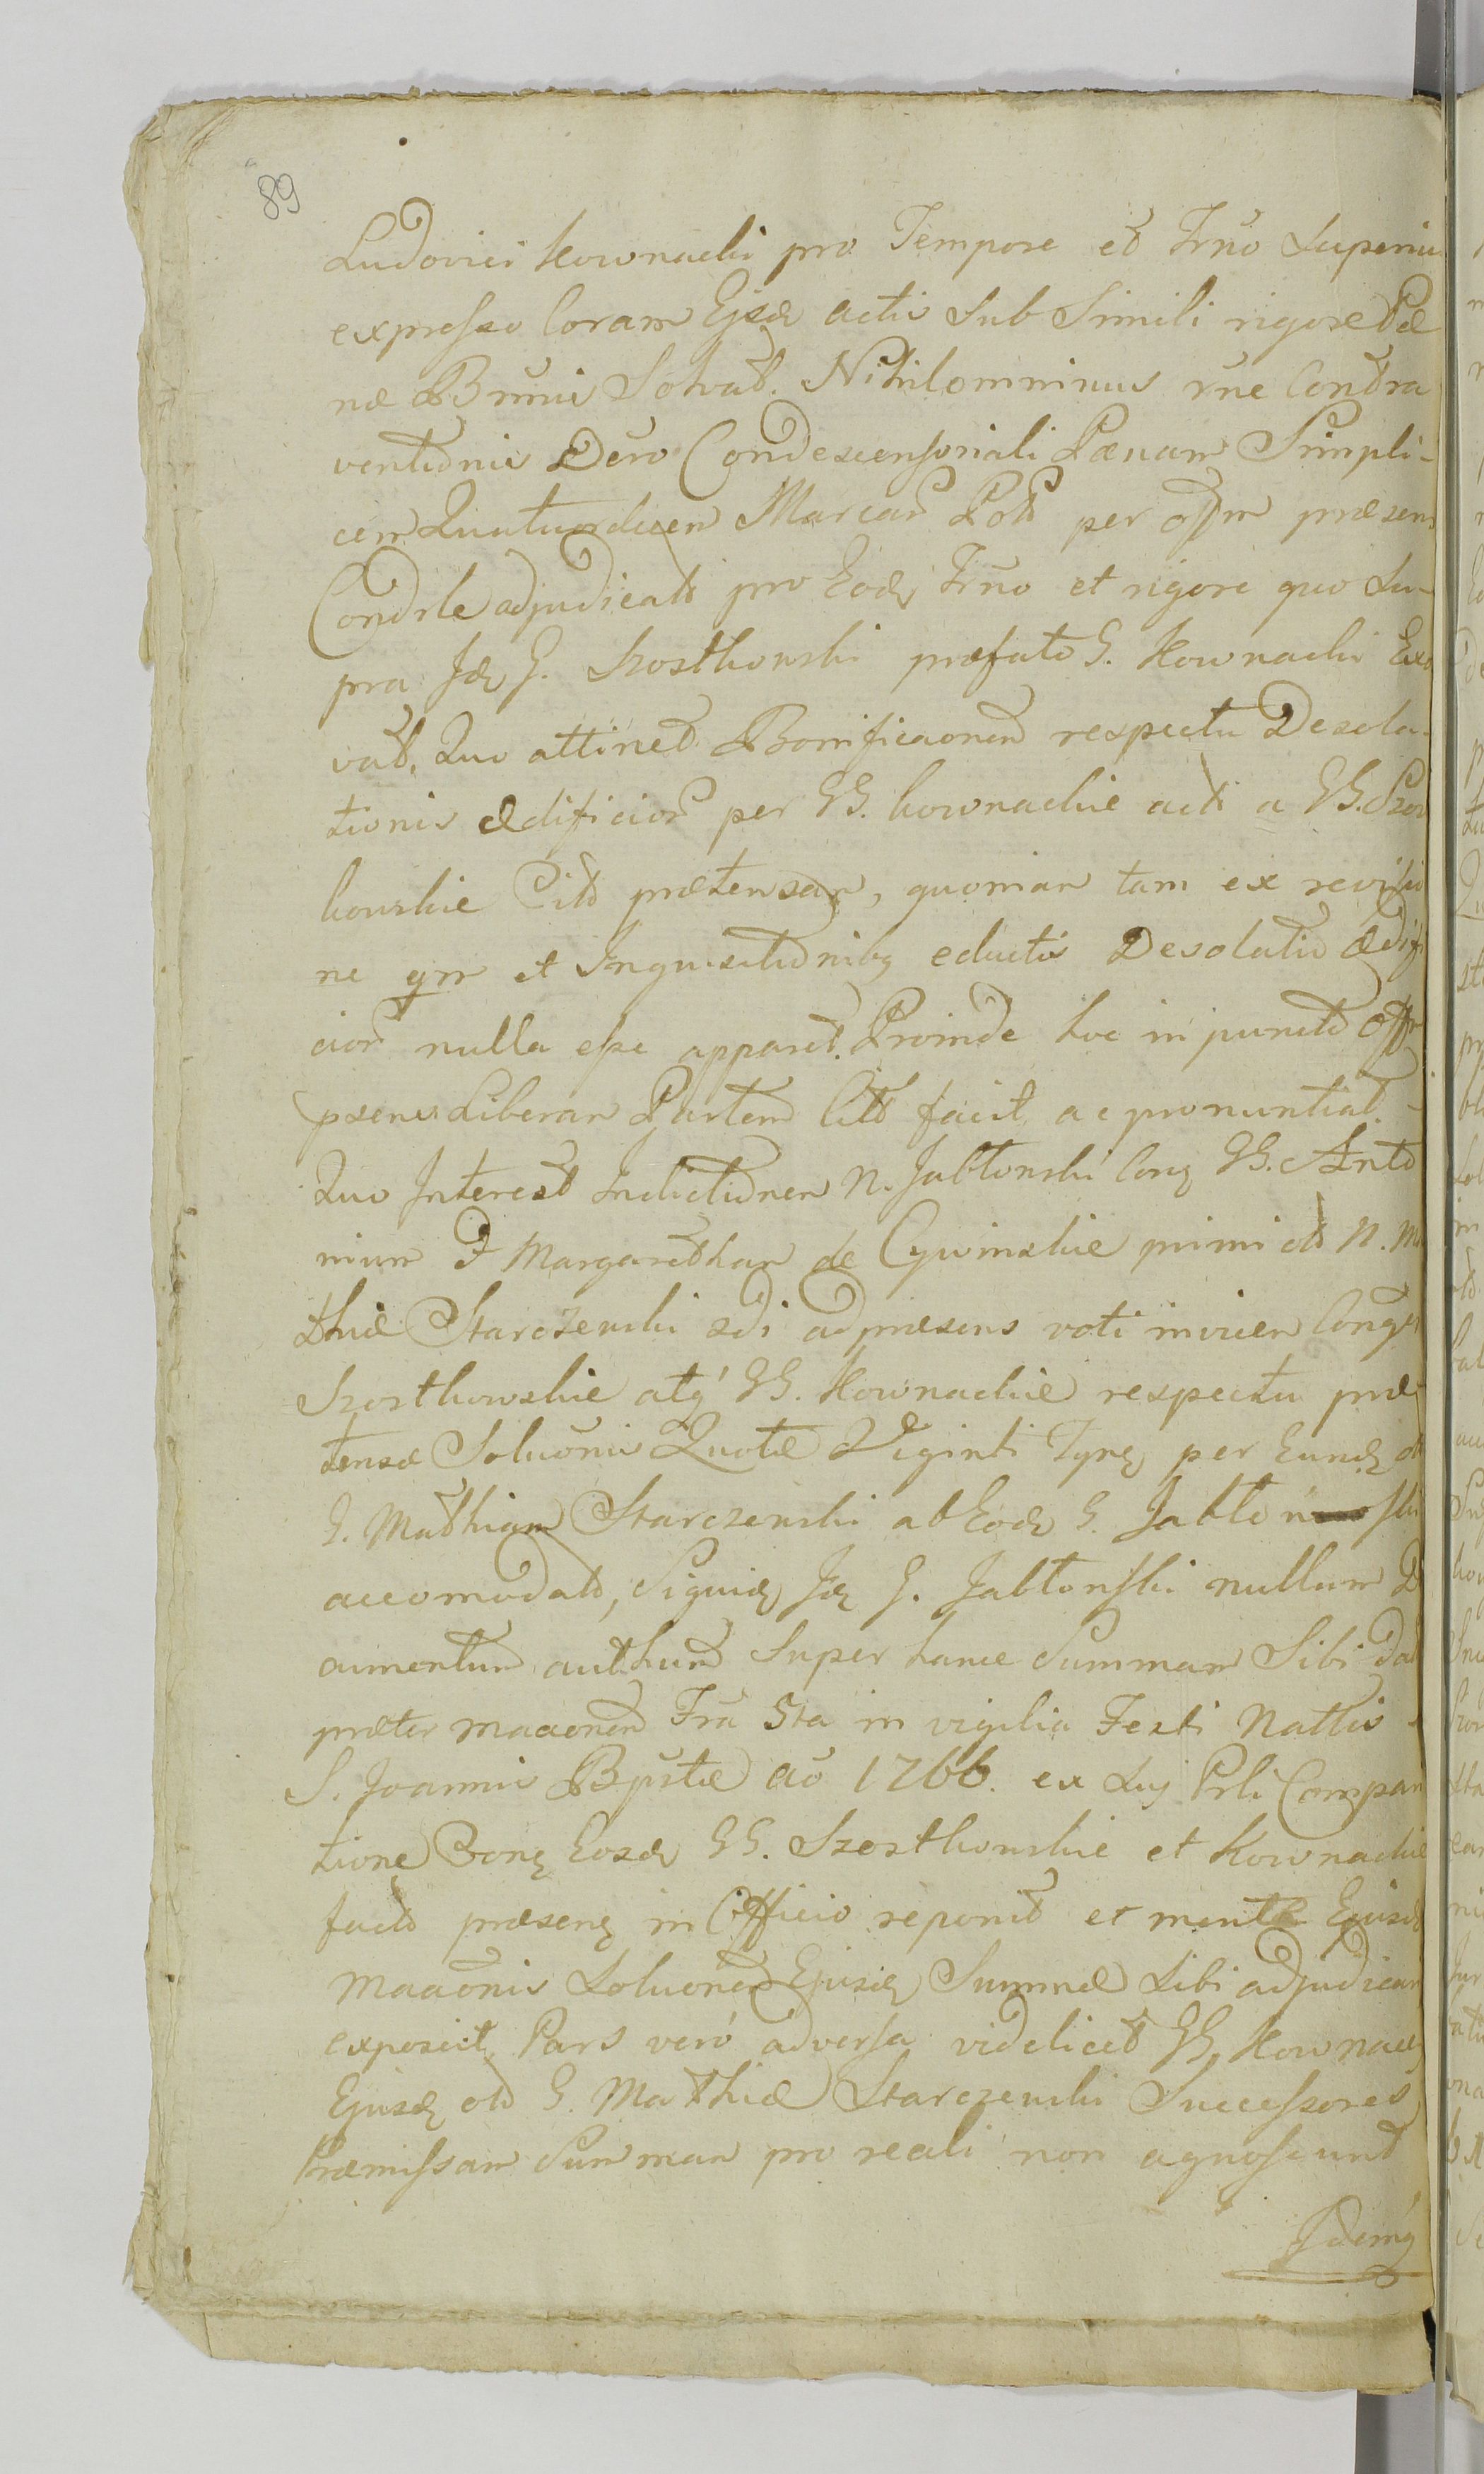 89
Ludovici Kownacki pro Tempore et Trno Superiu
expresso Coram Ejsd actis Sub Simili rigore Pæ
næ Bnniæ Solvat. Nihilominus rne Contra
ventionis Dcro Condescensoriali Pœnam Simpli-
cem Quatuordecem Marcar Pol per offm præsens
Condrle adjudicat pro Eod Trno et rigore quo Su-
pra Jd G. Szostkowski præfato G. Kownacki
vat, Quo attinet Bonificaonem respectu Desola-
tionis ædificior per GG. Kownackie act a GG. Szos
kowskie Cit prætensam, quoniam tam ex revisio
ne qm et Inquisitionibq eductis Desolatio Ædifi
cior nulla esse apparet. Proinde hoc in puncto Offm
psens Liberam Partem Cit facit ac pronuntiat. -
Quo Interest Indictionem N. Jabłonski Cong GG. Anto
nium & Margaretham de Cywinskie primi olt N. Ma
thiæ Starczenski 2di ad præsens voti invicem Cong
Szostkowskie atq GG. Kownackie respectu præ
tensæ Soluonis Quotæ Viginti Tynf per Eund ol
G. Mathiam Starczenski ab Eod G. Jabłonski
accomodat, Siquid Jd G. Jabłonski nullum Do
cumentum authum Super hance Summam Sibi dat
præter maaonem Fra 5ta in vigilia Festi Nattis
S. Joannis Bpstæ ao 1766. ex Luj Prli Compar
tione Bonę Eosd GG. Szostkowskie et Kownackie
fact præsenę in Officio reponit et mente Ejusd
maaonis Soluonem Ejusd Summæ Sibi adjudicari
exposcit, Pars vero adversa videlicet GG. Kownacy
Ejusd olt G. Mathiæ Starczenski Successores
Præmissam Summam pro reali non agnoscunt
Idemq